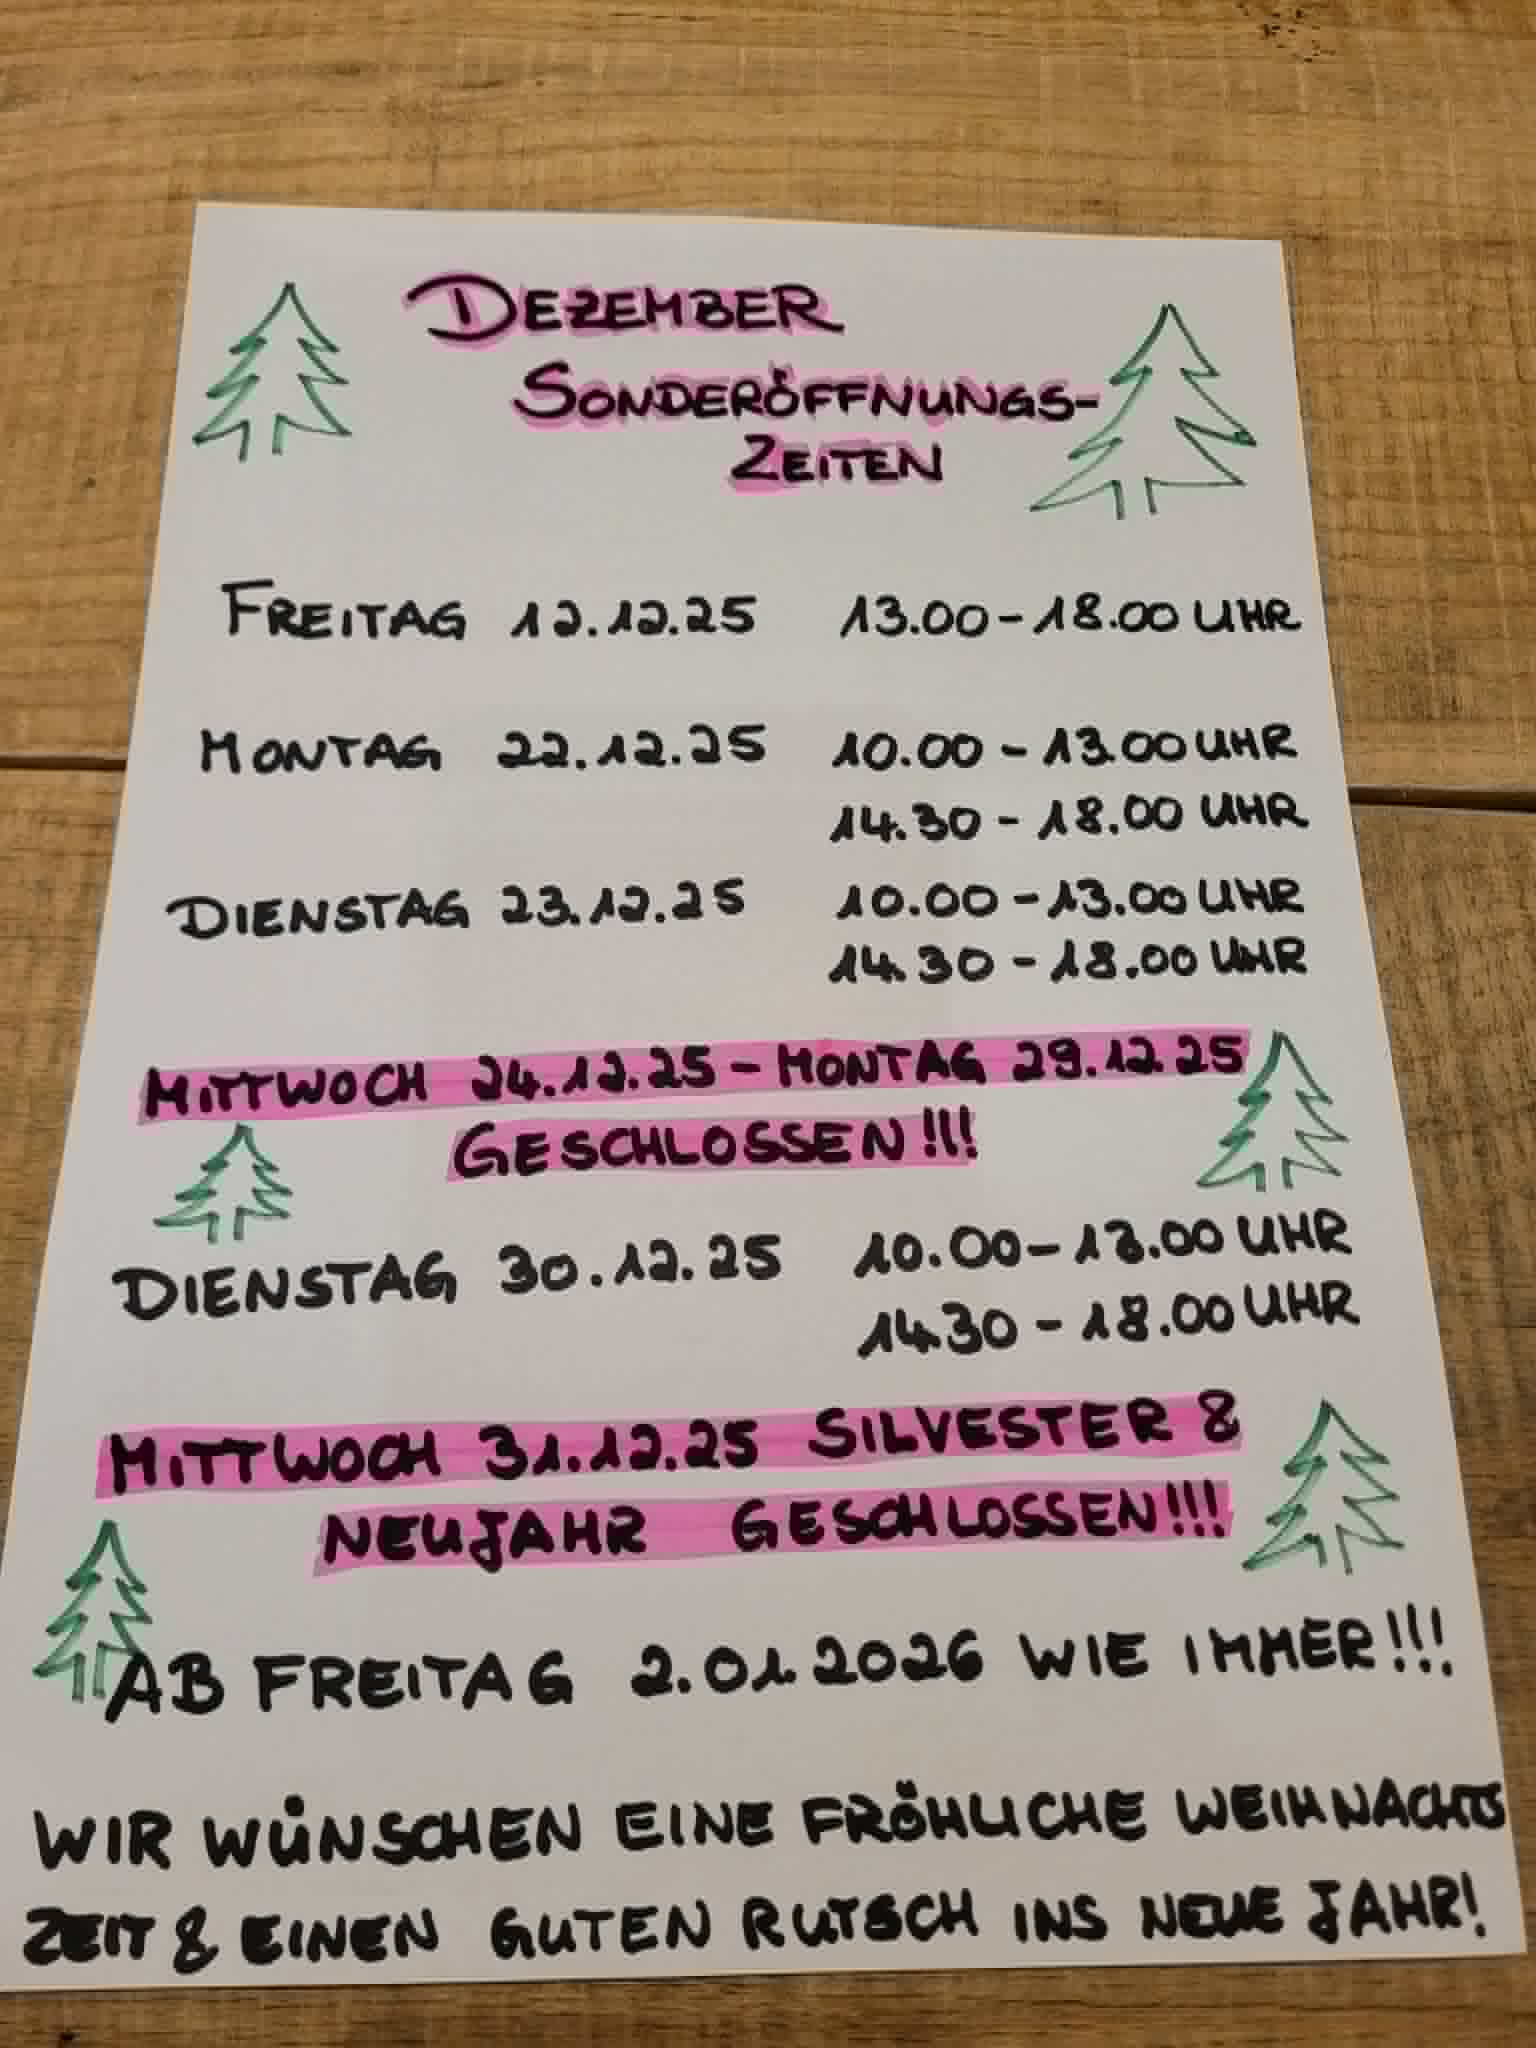 DEZEMBER
SONDERÖFFNUNGS-
ZEITEN
FREITAG 12.12.25 13.00-18.00 UHR
MONTAG 22.12.25 10.00-13.00 UHR
14.30-18.00 UHR
DIENSTAG 23.12.25 10.00-13.00 UHR
14.30-18.00 UHR
MITTWOCH 24.12.25-MONTAG 29.12.25
GESCHLOSSEN!!!
DIENSTAG 30.12.25 10.00-13.00 UHR
14.30-18.00 UHR
MITTWOCH 31.12.25 SILVESTER &
NEUJAHR GESCHLOSSEN!!!
AB FREITAG 2.01.2026 WIE IMMER!!!
WIR WÜNSCHEN EINE FRÖHLICHE WEIHNACHTS
ZEIT & EINEN GUTEN RUTSCH INS NEUE JAHR!